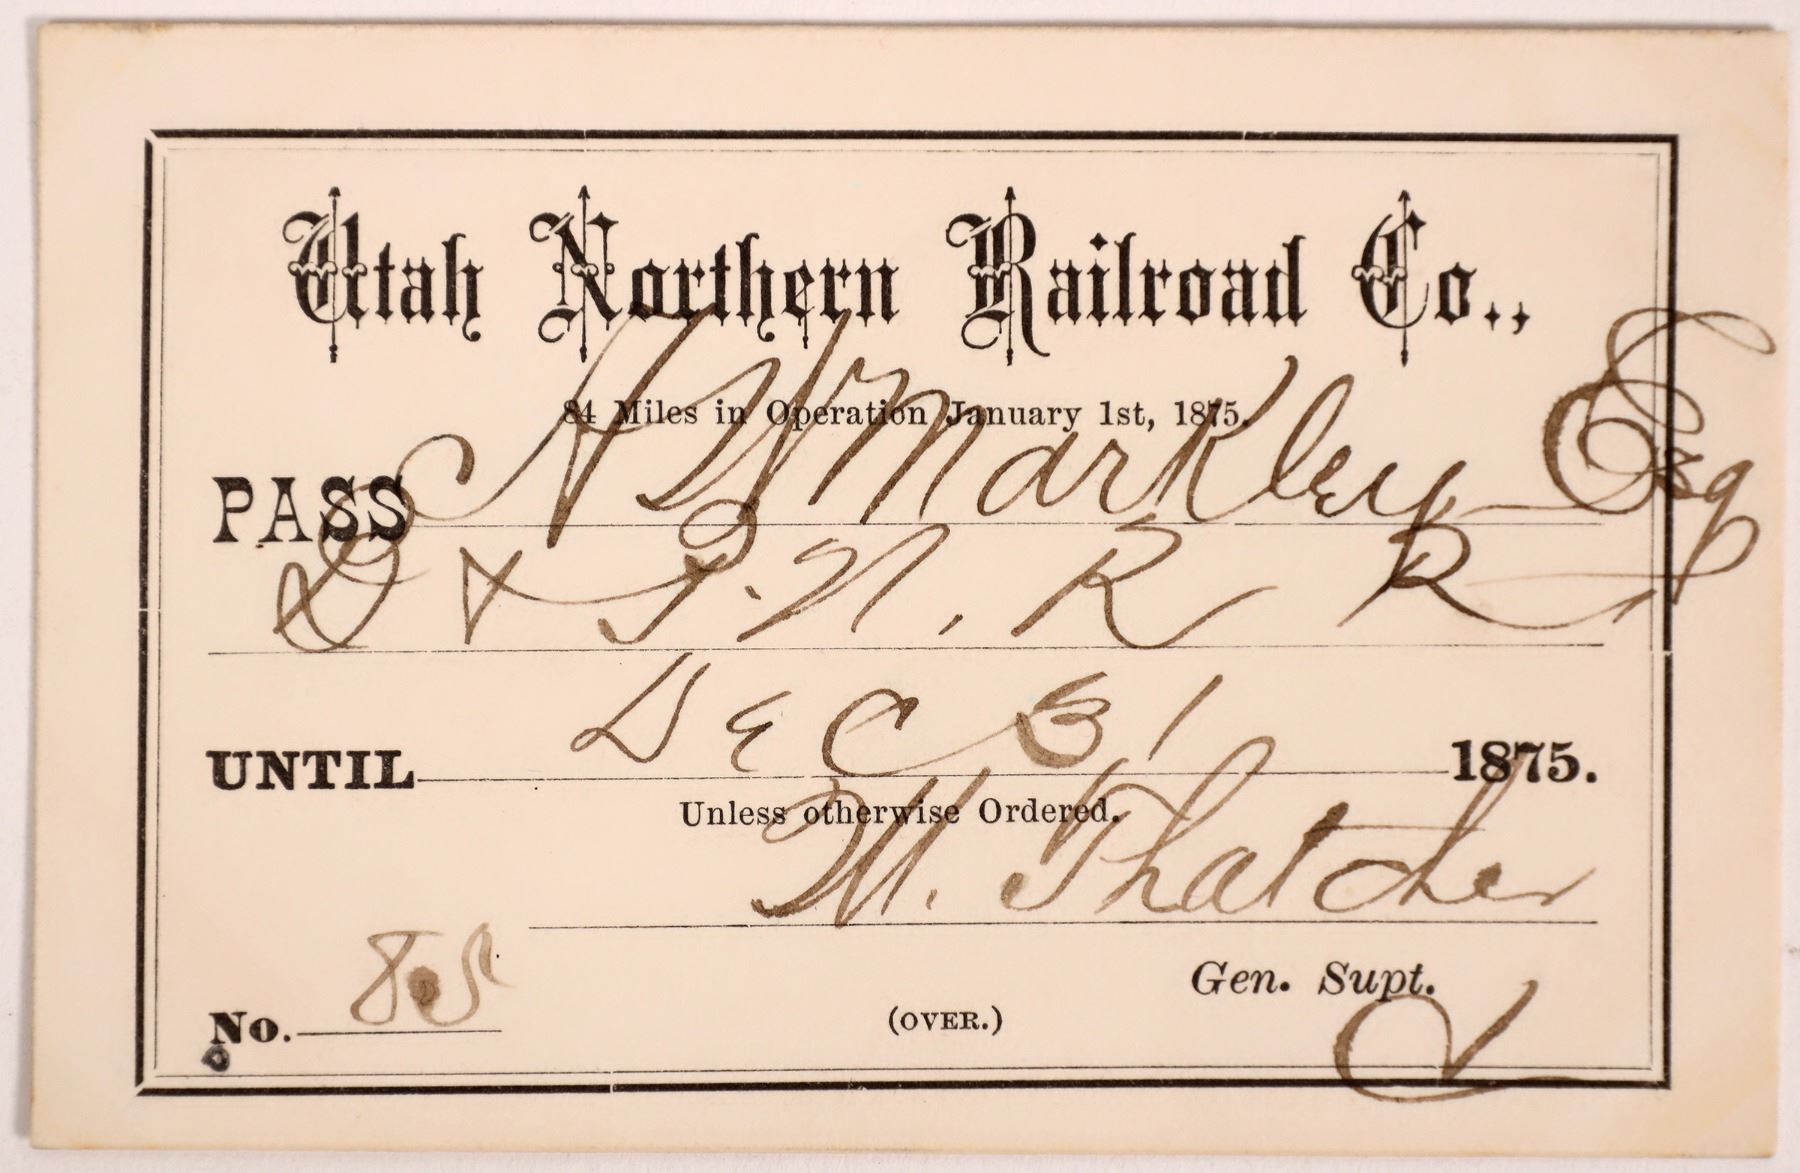 Utah Northern Railroad Co.,
84 Miles in Operation January 1st, 1875.
PASS H W Markley Esq
R R
UNTIL Dec 31 1875.
Unless otherwise Ordered.
M. Thatcher
Gen. Supt.
No. 85
(OVER.)